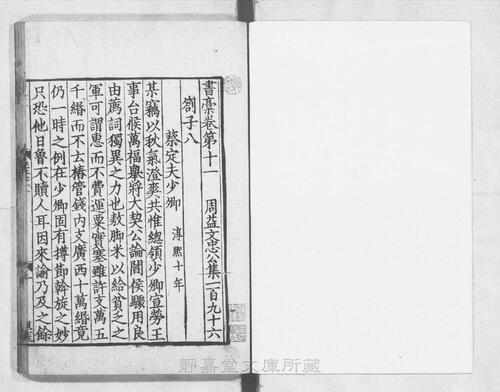 書藁卷第十一　周益文忠公集一百九十六
劄子八
蔡定夫少卿　淳熙十年
某竊以秋氣澄爽共惟緫領少卿宣勞王
事台候萬福舉將大契公論閻侯驟用良
由薦詞獨異之力也敖脚米以給貧乏之
軍可謂惠而不費運粟實塞雖許支萬五
千緡而不去樁管錢内支廣西十萬緡竟
仍一時之例在少卿固有撙節斡旋之妙
只恐他日魯不贖人耳因來諭乃及之餘
靜嘉堂文庫所藏